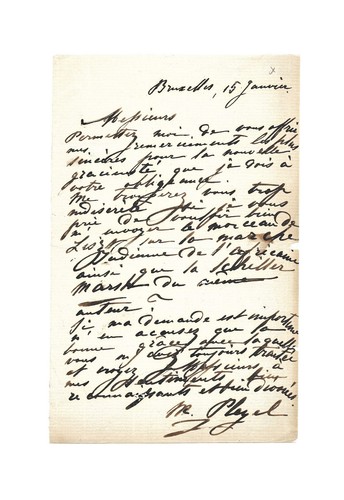 Bruxelles, 15 Janvier.
Messieurs
Permettez moi de vous offrir
mes remerciements les plus
sincères pour la nouvelle
gracieuseté que je dois à
votre obligeance.
Me trouverez vous trop
indiscrète si je vous
prie de vouloir bien
m'envoyer le morceau de
Liszt sur la marche
Indienne de l'africaine
ainsi que la Schiller
Marsch du même
auteur?
Si ma demande est importune
n'en accusez que la
bonne grâce avec laquelle
vous m'avez toujours traitée
et croyez Messieurs à
mes sentiments bien
reconnaissants et bien dévoués.
M. Pleyel